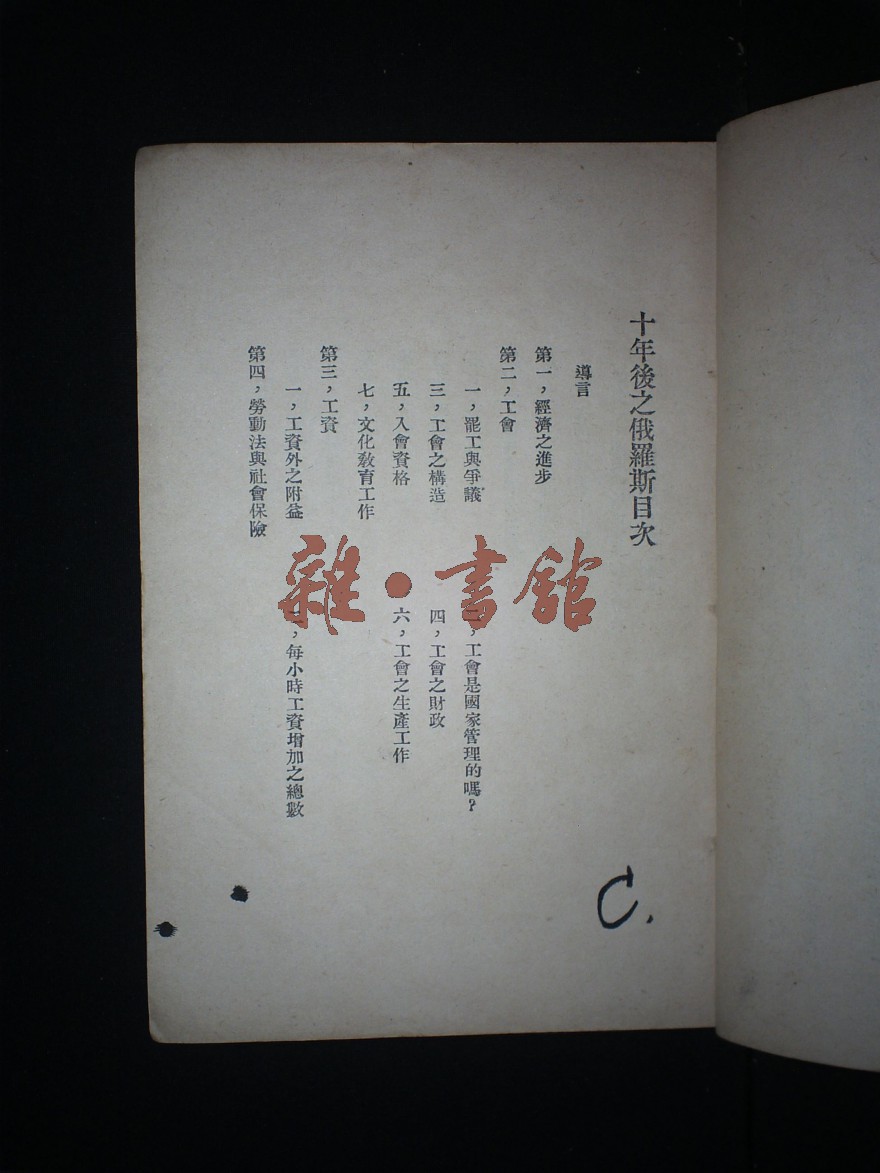 十年後之俄羅斯目次
導言
第一，經濟之進步
第二，工會
一，罷工與爭議　二，工會是國家管理的嗎？
三，工會之構造　四，工會之財政
五，入會資格　六，工會之生產工作
七，文化教育工作
第三，工資
一，工資外之附益　二，每小時工資增加之總數
第四，勞動法與社會保險
雜·書館
C.